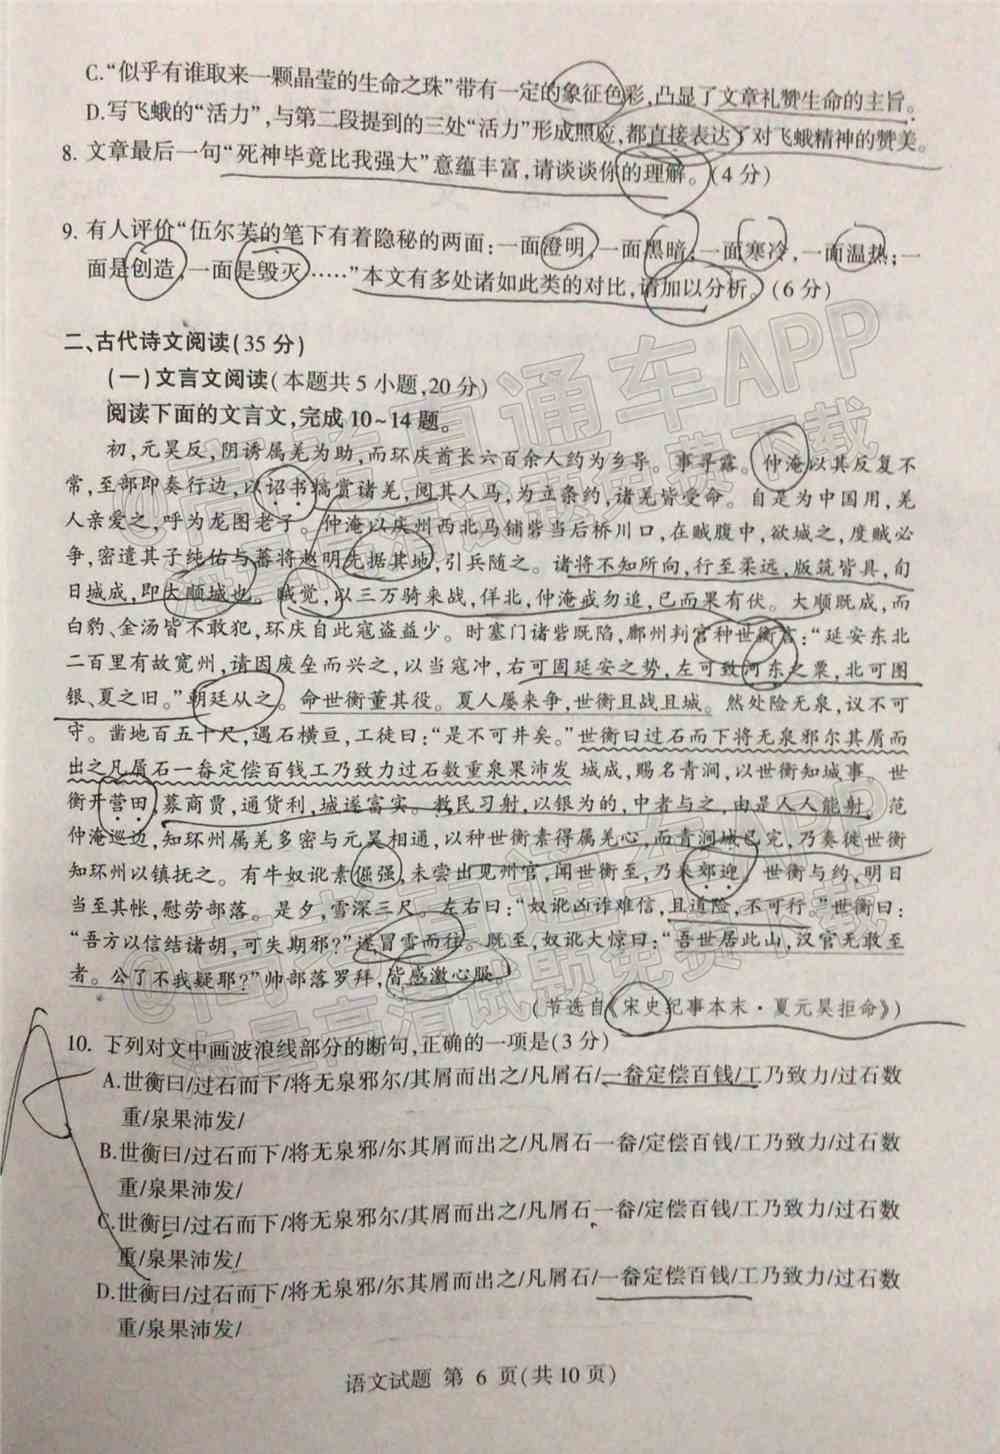 C.“似乎有谁取来一颗晶莹的生命之珠”带有一定的象征色彩,凸显了文章礼赞生命的主旨。
D.写飞蛾的“活力”,与第二段提到的三处“活力”形成照应,都直接表达了对飞蛾精神的赞美。
8. 文章最后一句“死神毕竟比我强大”意蕴丰富,请谈谈你的理解。(4分)
9. 有人评价“伍尔芙的笔下有着隐秘的两面:一面澄明,一面黑暗;一面寒冷,一面温热;一
面是创造,一面是毁灭……”本文有多处诸如此类的对比,请加以分析。(6分)
二、古代诗文阅读(35分)
(一)文言文阅读(本题共5小题,20分)
阅读下面的文言文,完成10~14题。
初,元昊反,阴诱属羌为助,而环庆酋长六百余人约为乡导。事寻露。仲淹以其反复不
常,至部即奏行边,以诏书犒赏诸羌,阅其人马,为立条约,诸羌皆受命。自是为中国用,羌
人亲爱之,呼为龙图老子。仲淹以庆州西北马铺砦当后桥川口,在贼腹中,欲城之,度贼必
争,密遣其子纯佑与蕃将赵明先据其地,引兵随之。诸将不知所向,行至柔远,版筑皆具,旬
日城成,即大顺城也。贼觉,以三万骑来战,佯北,仲淹戒勿追,已而果有伏。大顺既成,而
白豹、金汤皆不敢犯,环庆自此寇盗益少。时塞门诸砦既陷,鄜州判官种世衡言:“延安东北
二百里有故宽州,请因废垒而兴之,以当寇冲,右可固延安之势,左可致河东之粟,北可图
银、夏之旧。”朝廷从之。命世衡董其役。夏人屡来争,世衡且战且城。然处险无泉,议不可
守。凿地百五十尺,遇石横亘,工徒曰:“是不可井矣。”世衡曰过石而下将无泉邪尔其屑而
出之凡屑石一畚定偿百钱工乃致力过石数重泉果沛发 城成,赐名青涧,以世衡知城事。世
衡开营田,募商贾,通货利,城遂富实。教民习射,以银为的,中者与之,由是人人能射。范
仲淹巡边,知环州属羌多密与元昊相通,以种世衡素得属羌心,而青涧城已完,乃奏徙世衡
知环州以镇抚之。有牛奴讹素倔强,未尝出见州官,闻世衡至,乃来郊迎。世衡与约,明日
当至其帐,慰劳部落。是夕,雪深三尺。左右曰:“奴讹凶诈难信,且道险,不可行。”世衡曰:
“吾方以信结诸胡,可失期邪?”遂冒雪而往。既至,奴讹大惊曰:“吾世居此山,汉官无敢至
者。公了不我疑耶?”帅部落罗拜,皆感激心服。
(节选自《宋史纪事本末·夏元昊拒命》)
10. 下列对文中画波浪线部分的断句,正确的一项是(3分)
A.世衡曰/过石而下/将无泉邪尔/其屑而出之/凡屑石/一畚定偿百钱/工乃致力/过石数
重/泉果沛发/
B.世衡曰/过石而下/将无泉邪/尔其屑而出之/凡屑石一畚/定偿百钱/工乃致力/过石数
重/泉果沛发/
C.世衡曰/过石而下/将无泉邪尔/其屑而出之/凡屑石一畚/定偿百钱/工乃致力/过石数
重/泉果沛发/
D.世衡曰/过石而下/将无泉邪/尔其屑而出之/凡屑石/一畚定偿百钱/工乃致力/过石数
重/泉果沛发/
语文试题 第 6 页(共10页)